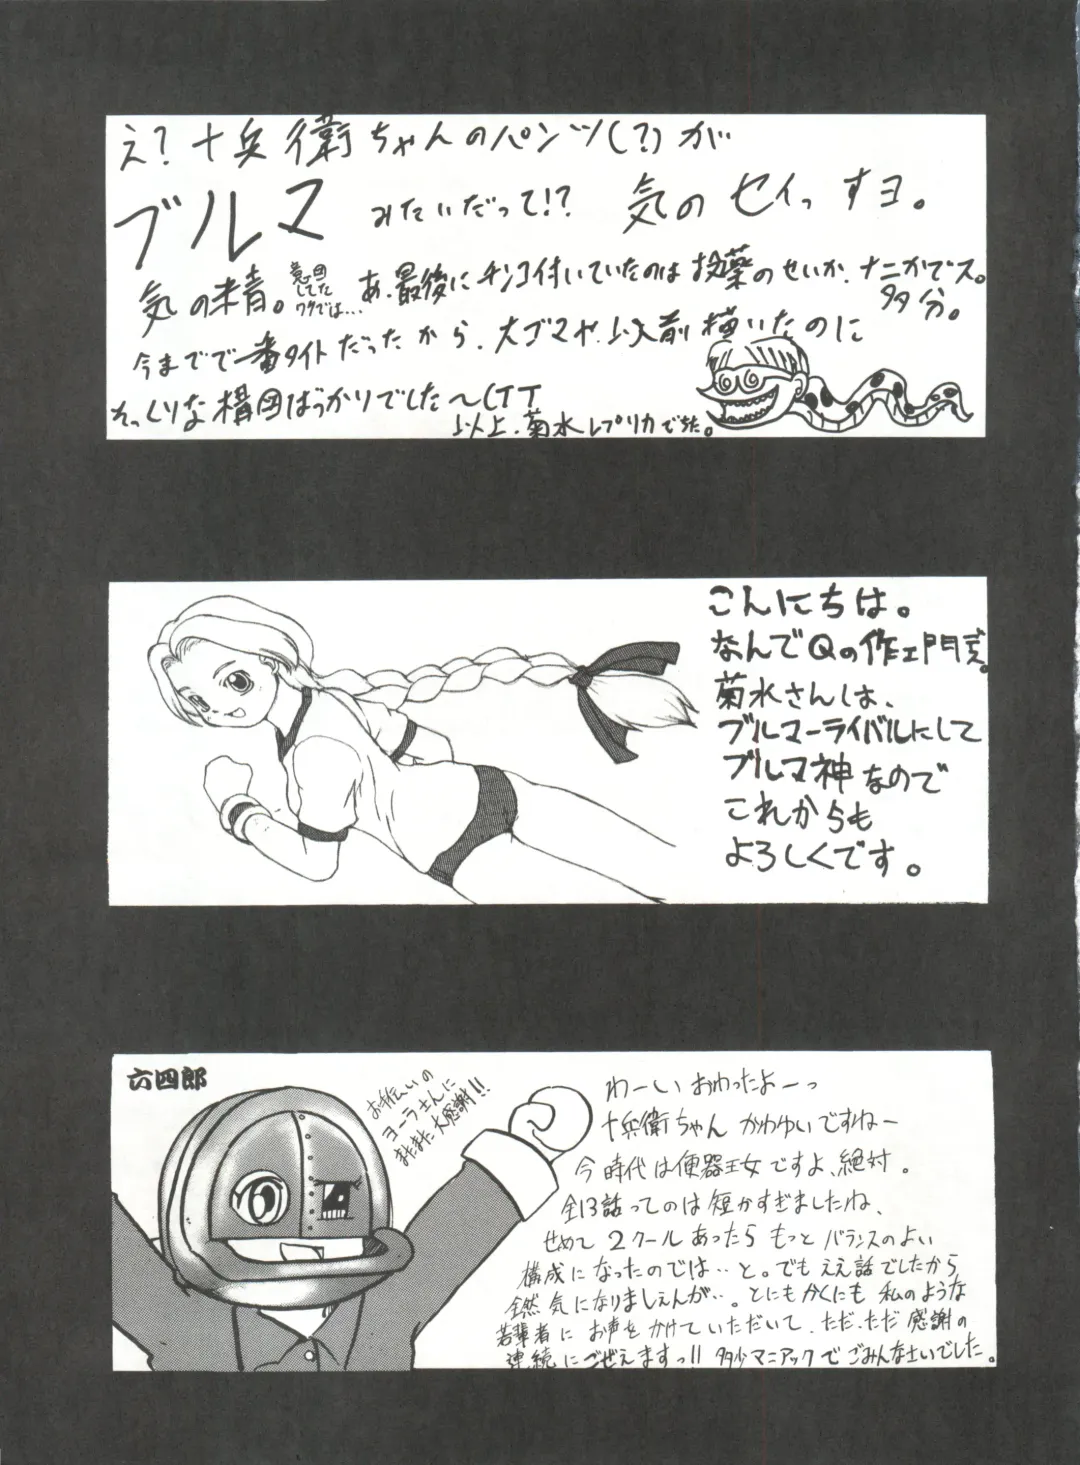 え?十兵衛ちゃんのパンツ(?)が
ブルマ みたいだって!? 気のセイっすヨ。
気の精。意図してたワケでは… あ、最後にチンコ付いていたのはお薬のせいか、ナニかデス。
多分。
今までで一番タイトだったから、大ゴマや、以前描いたのに
そっくりな構図ばっかりでした〜(TT
以上、菊水レプリカでした。
こんにちは。
なんでQの作左エ門式。
菊水さんは、
ブルマーライバルにして
ブルマ神なので
これからも
よろしくです。
六四郎
お手伝いの
ヨーラさんに
またまた大感謝!!
わーいおわったよーっ
十兵衛ちゃんかわゆいですねー
今時代は便器王女ですよ、絶対。
全13話ってのは短かすぎましたね、
せめて2クールあったらもっとバランスのよい
構成になったのでは‥と。でもええ話でしたから
全然気になりましぇんが‥。とにもかくにも私のような
若輩者にお声をかけていただいて、ただ、ただ感謝の
連続にごぜえますっ!!多少マニアックでごみんなさいでした。